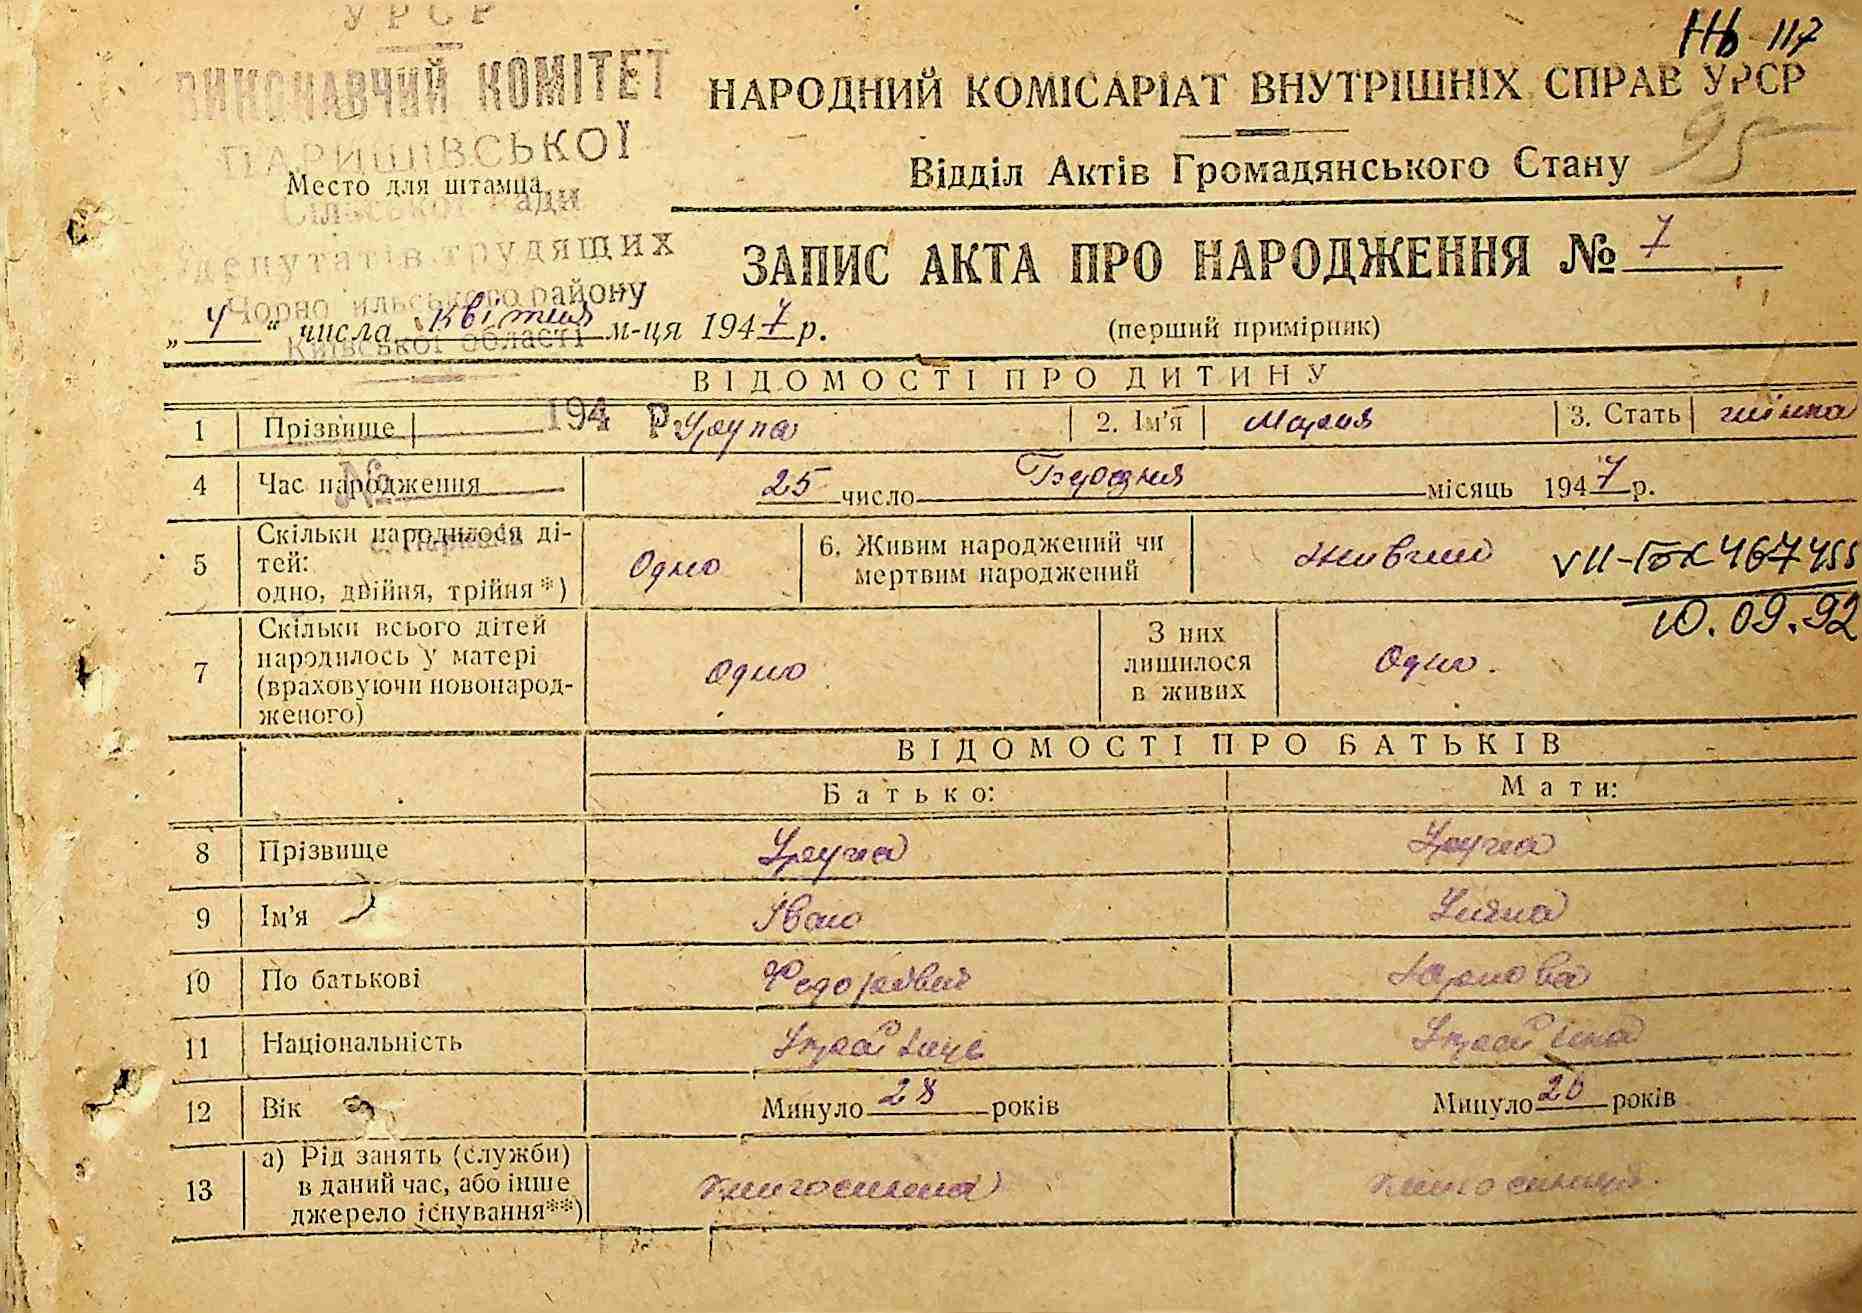 УРСР
ВИКОНАВЧИЙ КОМІТЕТ
ПАРИШІВСЬКОЇ
Сільської Ради
депутатів трудящих
Чорнобильського району
Київської області
Место для штампа
194 р.
№
с. Паришів
117
НАРОДНИЙ КОМІСАРІАТ ВНУТРІШНІХ СПРАВ УРСР
95
Відділ Актів Громадянського Стану
ЗАПИС АКТА ПРО НАРОДЖЕННЯ № 7
„ 4 “ числа квітня м-ця 1947 р.
(перший примірник)
ВІДОМОСТІ ПРО ДИТИНУ
1 Прізвище 2. Ім'я Мария 3. Стать жінка
4 Час народження 25 число місяць 1947 р.
5 Скільки народилося ді-
тей:
одно, двійня, трійня*) Одно
6. Живим народжений чи
мертвим народжений живим
VII-БК 467455
10.09.92
7 Скільки всього дітей
народилось у матері
(враховуючи новонарод-
женого) Одно
З них
лишилося
в живих Одно.
ВІДОМОСТІ ПРО БАТЬКІВ
Батько: Мати:
8 Прізвище
9 Ім'я Іван Уляна
10 По батькові
11 Національність Українець Українка
12 Вік Минуло 28 років Минуло 20 років
13 а) Рід занять (служби)
в даний час, або інше
джерело існування**)